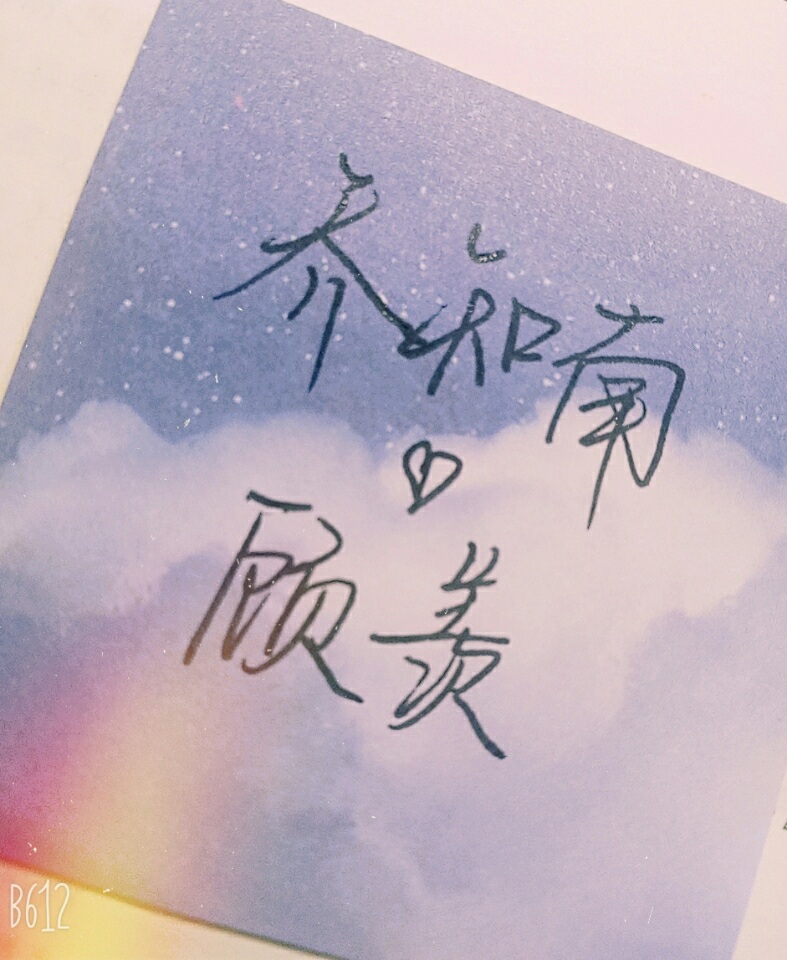 乔知南
顾羡
B612